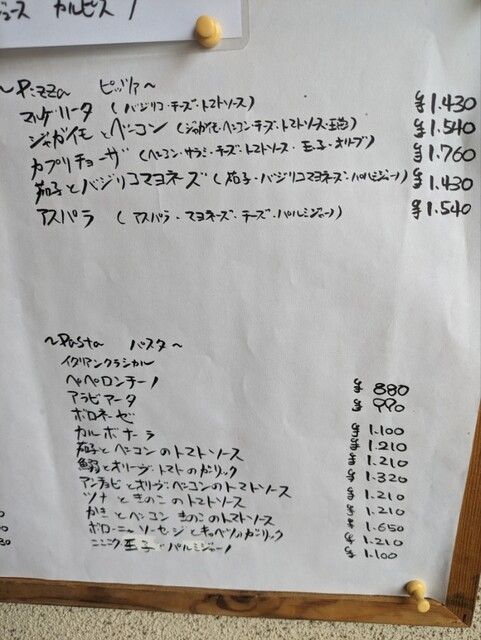 ジュース カルピス
~Pizza ピッツァ~
マルゲリータ (バジリコ・チーズ・トマトソース) ¥1.430
ジャガイモとベーコン (ジャガイモ・ベーコン・チーズ・トマトソース・玉ネギ) ¥1.540
カプリチョーザ (ベーコン・サラミ・チーズ・トマトソース・玉子・オリーブ) ¥1.760
茄子とバジリコマヨネーズ (茄子・バジリコマヨネーズ・パルミジャーノ) ¥1.430
アスパラ (アスパラ・マヨネーズ・チーズ・パルミジャーノ) ¥1.540
~Pasta パスタ~
イタリアンクラシカル
ペペロンチーノ ¥880
アラビアータ ¥990
ボロネーゼ ¥1.100
カルボナーラ ¥1.210
茄子とベーコンのトマトソース ¥1.210
とオリーブ・トマトのガーリック ¥1.320
アンチョビとオリーブ・ベーコンのトマトソース ¥1.210
ツナときのこのトマトソース ¥1.210
かきとベーコン きのこのトマトソース ¥1.650
ボローニャソーセージとキャベツのガーリック ¥1.210
ニンニク 玉子 パルミジャーノ ¥1.100